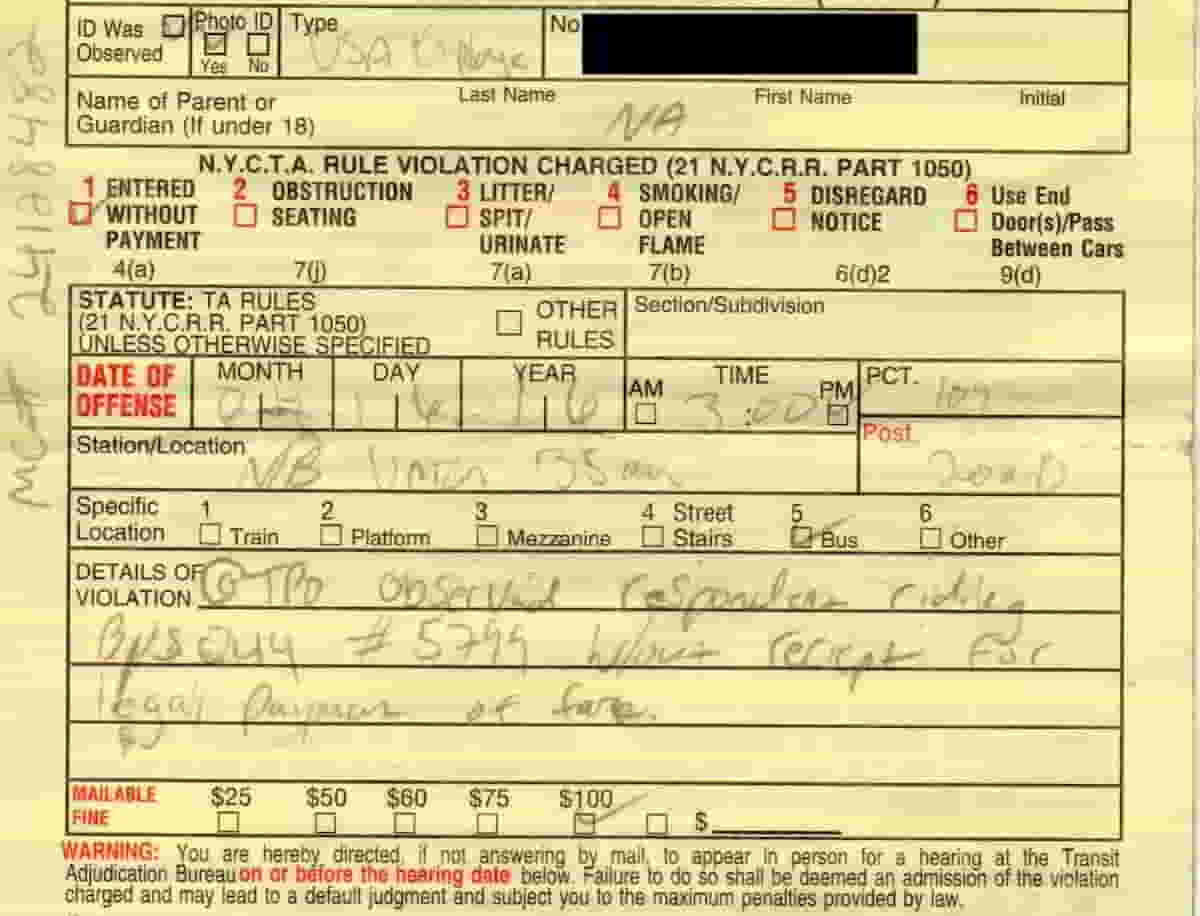 ID Was Observed Photo ID Yes No Type USA No
Name of Parent or Guardian (If under 18) Last Name First Name Initial
NA
N.Y.C.T.A. RULE VIOLATION CHARGED (21 N.Y.C.R.R. PART 1050)
1 ENTERED WITHOUT PAYMENT 4(a)
2 OBSTRUCTION SEATING 7(j)
3 LITTER/ SPIT/ URINATE 7(a)
4 SMOKING/ OPEN FLAME 7(b)
5 DISREGARD NOTICE 6(d)2
6 Use End Door(s)/Pass Between Cars 9(d)
STATUTE: TA RULES
(21 N.Y.C.R.R. PART 1050)
UNLESS OTHERWISE SPECIFIED
OTHER RULES
Section/Subdivision
DATE OF OFFENSE MONTH DAY YEAR
16 16
AM TIME PM
3:00
PCT.
Station/Location
N/B Union
Post
Specific Location 1 Train 2 Platform 3 Mezzanine 4 Street Stairs 5 Bus 6 Other
DETAILS OF VIOLATION @ TPO observed respondent riding
Bus Q44 # 5799 w/out reciept For
legal payment of fare.
MAILABLE FINE $25 $50 $60 $75 $100 $
WARNING: You are hereby directed, if not answering by mail, to appear in person for a hearing at the Transit
Adjudication Bureau on or before the hearing date below. Failure to do so shall be deemed an admission of the violation
charged and may lead to a default judgment and subject you to the maximum penalties provided by law.